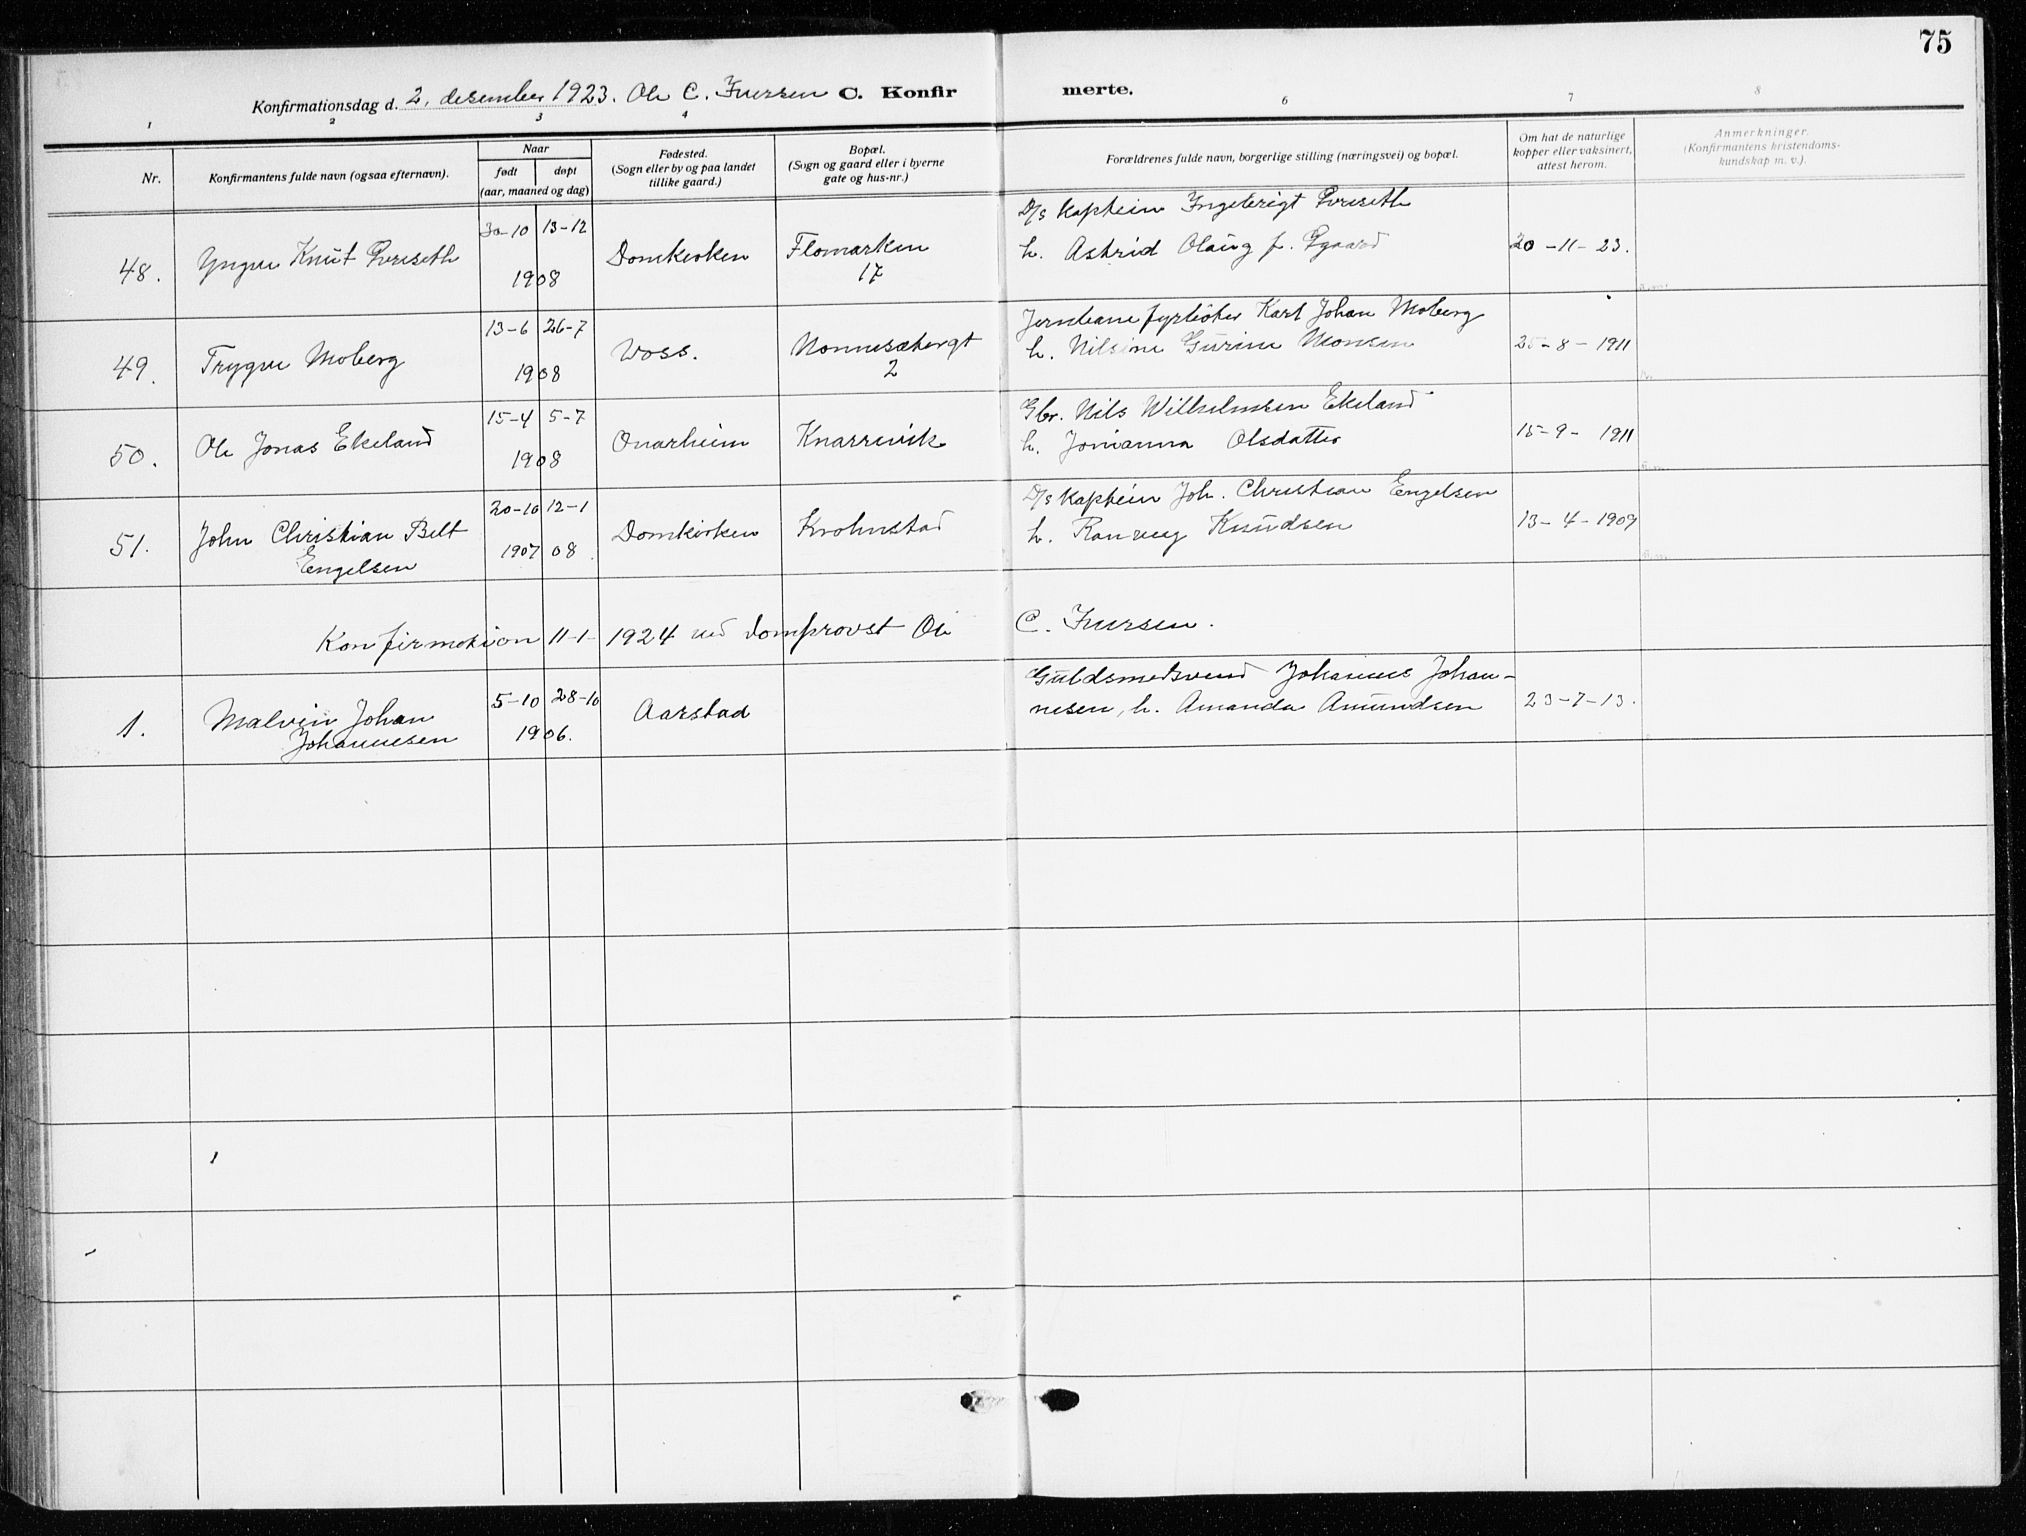 75
Konfirmationsdag d. 2. desember 1923. Ole C. Iversen C. Konfirmerte.
1 2 3 4 6 7 8
Nr.
Konfirmantens fulde navn (ogsaa efternavn).
Naar
født døpt
(aar, maaned og dag)
Fødested.
(Sogn eller by og paa landet
tillike gaard.)
Bopæl.
(Sogn og gaard eller i byerne
gate og hus-nr.)
Forældrenes fulde navn, borgerlige stilling (næringsvei) og bopæl.
Om hat de naturlige
kopper eller vaksinert,
attest herom.
Anmerkninger.
(Konfirmantens kristendoms-
kundskap m. v.).
48. Yngve Knut 30-10 13-12 1908 Domkirken Flomarken 17
D/s Kaptein Ingebrigt
h. Astrid Olaug f. 20-11-23.
49. Trygve Moberg 13-6 26-7 1908 Voss. 2
Jernbanefyrbøter Karl Johan Moberg
h. Nilsine Gurine Monsen 25-8-1911
50. Ole Jonas Ekeland 15-4 5-7 1908 Onarheim Knarrevik
Gbr. Nils Wilhelmsen Ekeland
h. Olsdatter 15-9-1911
51. John Christian Belt Engelsen 20-10 12-1 1907 08 Domkirken Krohnstad
D/s Kaptein Joh. Christian Engelsen
h. Ranveig Knudsen 13-4-1909
Konfirmation 11-1-1924 ved Domprovst Ole C. Iversen.
1. Malvin Johan Johannesen 5-10 28-10 1906. Aarstad
Guldsmedsvend Johannes Johan-
nesen, h. Amanda Amundsen 23-7-13.